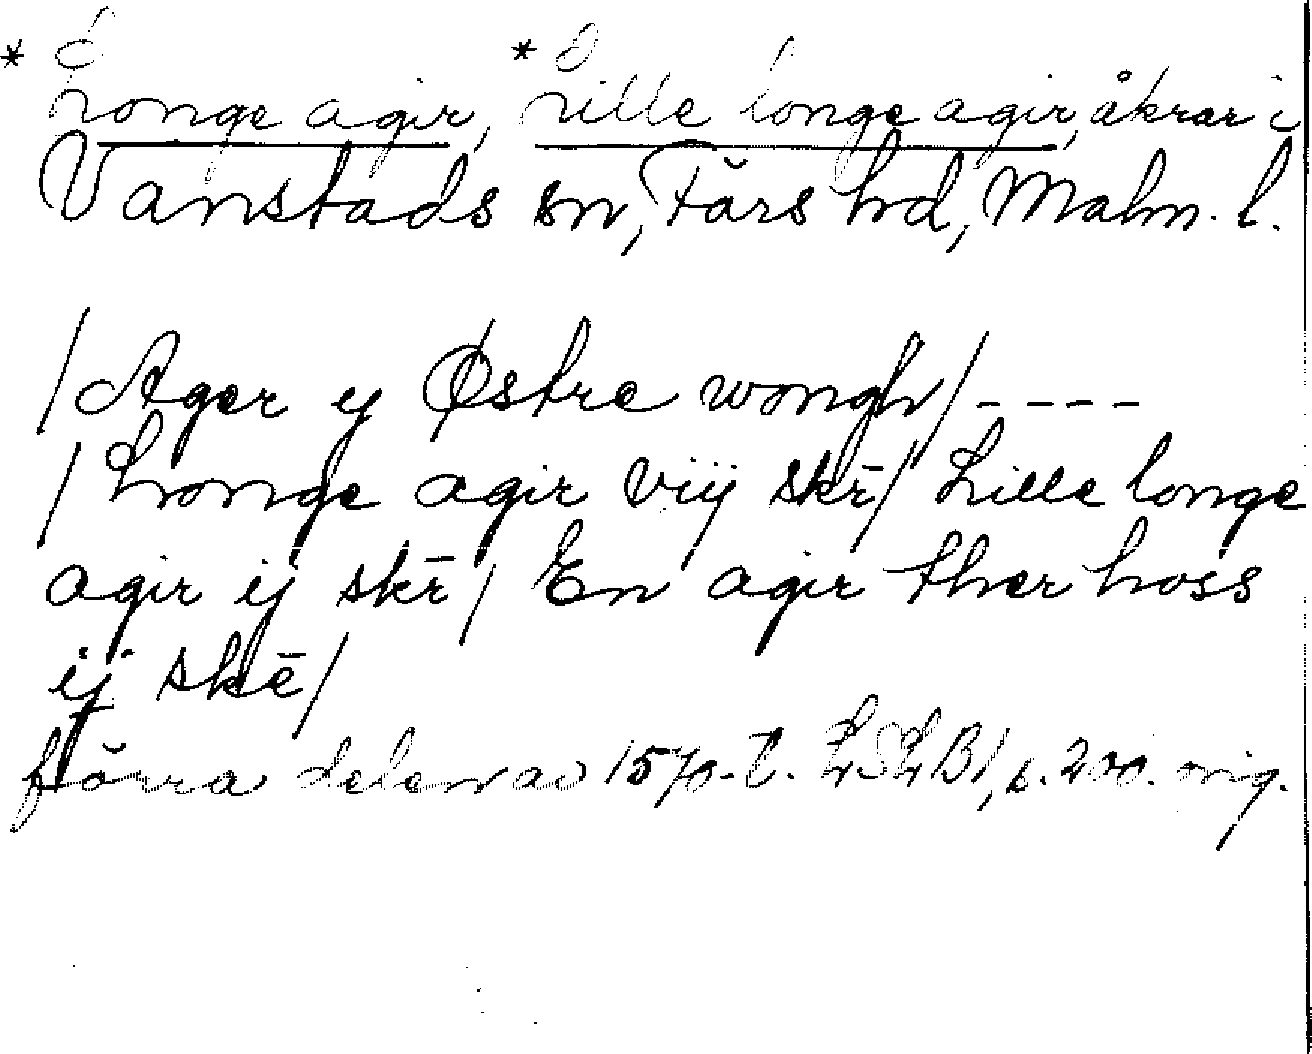 * Longe agir, * Lille longe agir, åkrar i
Vanstads sn, Färs hd, Malm. l.
/Ager ÿ Østre wongh/----
/Longe agir vij skē/ Lille longe
agir ij skē/ En agir ther hoss
ij skē/
förra delen av 1570-t. LSLB1, s. 200. orig.